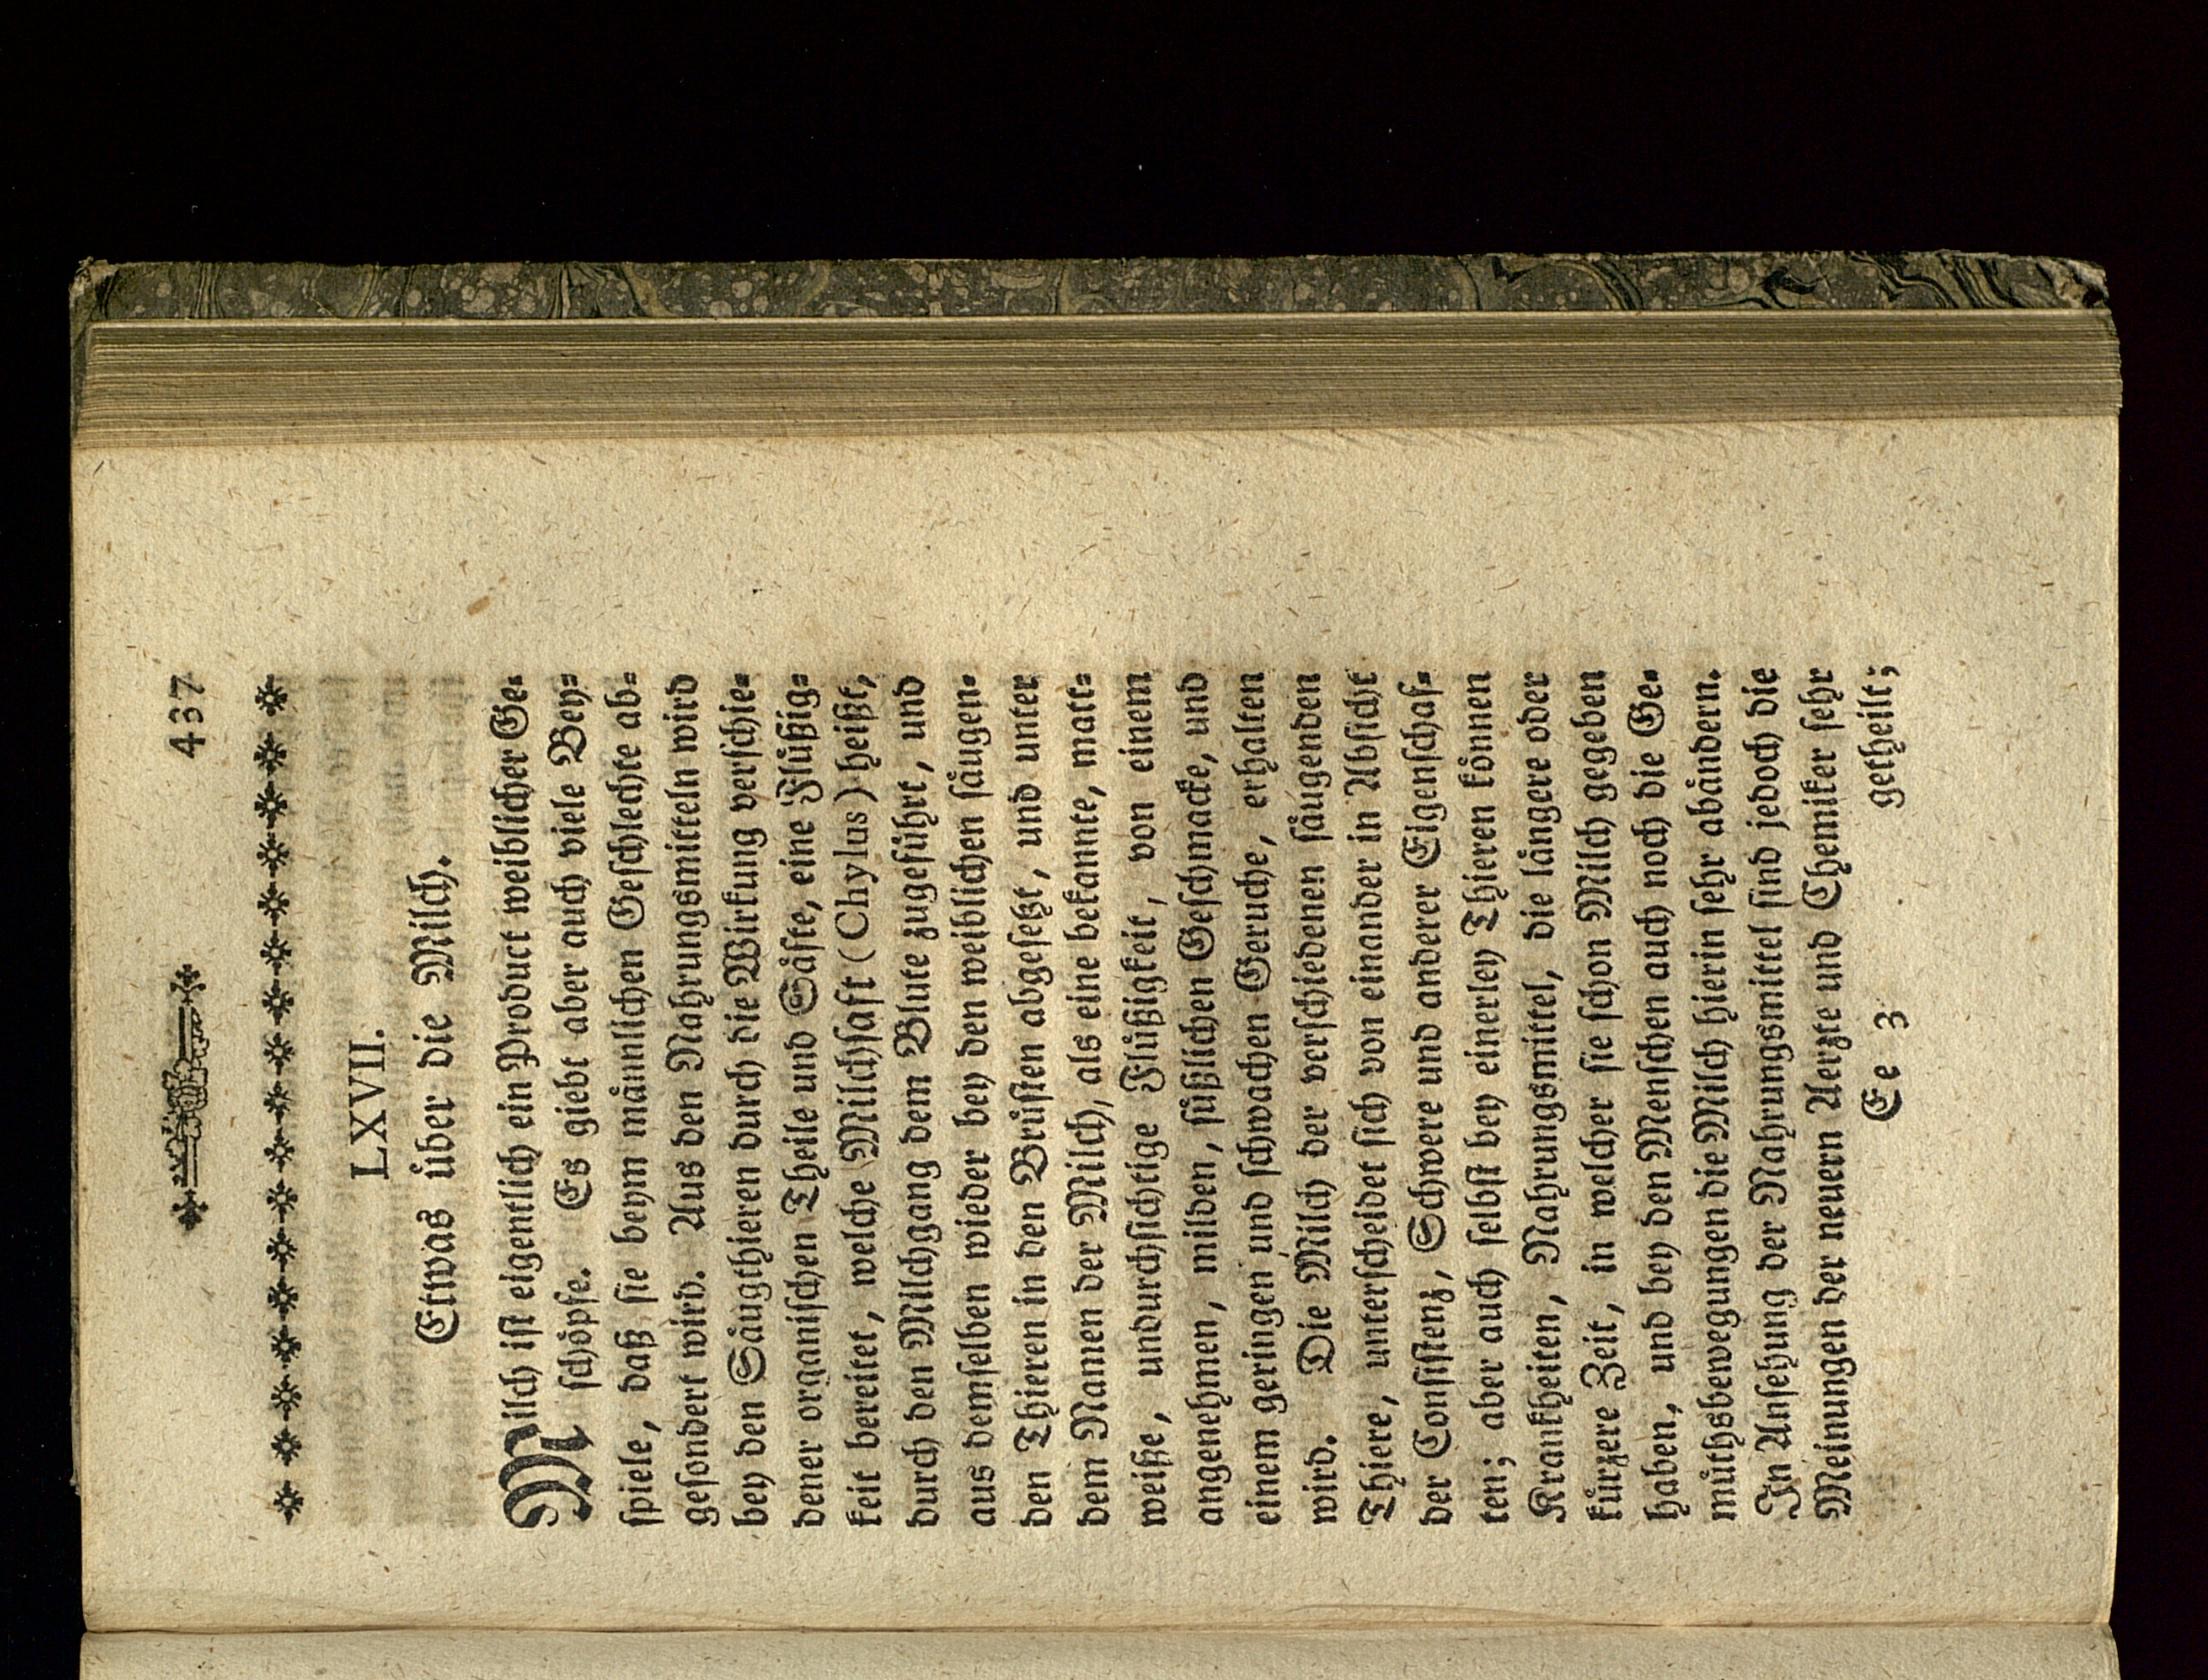 437
LXVII.
Etwas über die Milch.
Milch ist eigentlich ein Product weiblicher Ge-
schöpfe. Es giebt aber auch viele Bey-
spiele, daß sie beym männlichen Geschlechte ab-
gesondert wird. Aus den Nahrungsmitteln wird
bey den Säugthieren durch die Wirkung verschie-
dener organischen Theile und Säfte, eine Flüßig-
keit bereitet, welche Milchsaft (Chylus) heißt,
durch den Milchgang dem Blute zugeführt, und
aus demselben wieder bey den weiblichen säugen-
den Thieren in den Brüsten abgesetzt, und unter
dem Namen der Milch, als eine bekannte, matt-
weiße, undurchsichtige Flüßigkeit, von einem
angenehmen, milden, süßlichen Geschmacke, und
einem geringen und schwachen Geruche, erhalten
wird. Die Milch der verschiedenen säugenden
Thiere, unterscheidet sich von einander in Absicht
der Consistenz, Schwere und anderer Eigenschaf-
ten; aber auch selbst bey einerley Thieren können
Krankheiten, Nahrungsmittel, die längere oder
kürzere Zeit, in welcher sie schon Milch gegeben
haben, und bey den Menschen auch noch die Ge-
müthsbewegungen die Milch hierin sehr abändern.
In Ansehung der Nahrungsmittel sind jedoch die
Meinungen der neuern Aerzte und Chemiker sehr
Ee 3 getheilt;